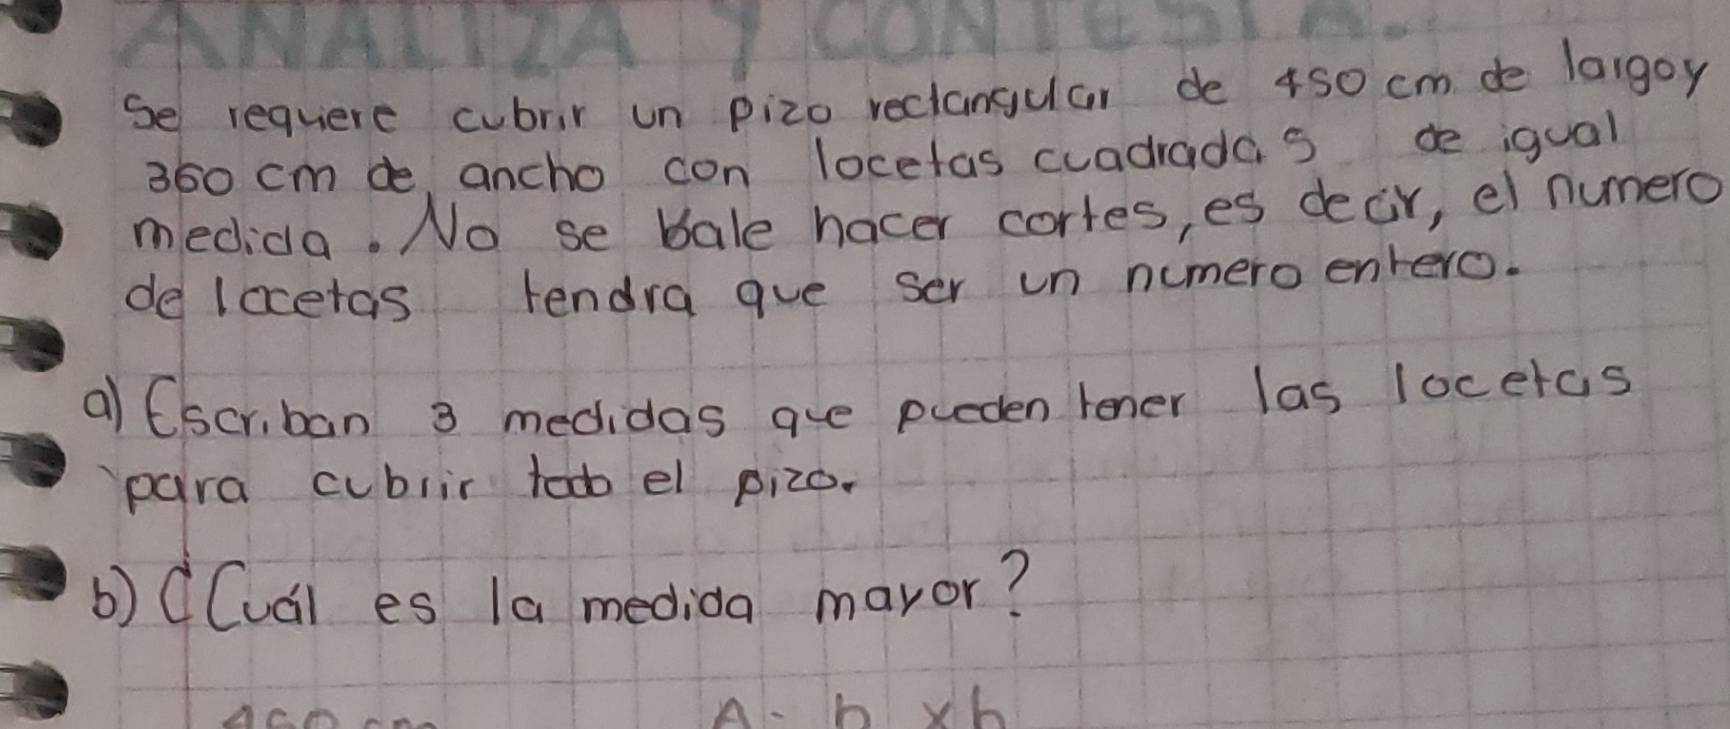 ANALIZA Y CONTESTA.
Se requiere cubrir un pizo rectangular de 450 cm de largo y
360 cm de ancho con locetas cuadradas de igual
medida. No se bale hacer cortes, es decir, el numero
de locetas tendra que ser un numero entero.
a) Escriban 3 medidas que pueden tener las locetas
para cubrir todo el pizo.
b) ¿Cuál es la medida mayor?
450 cm A = b x h